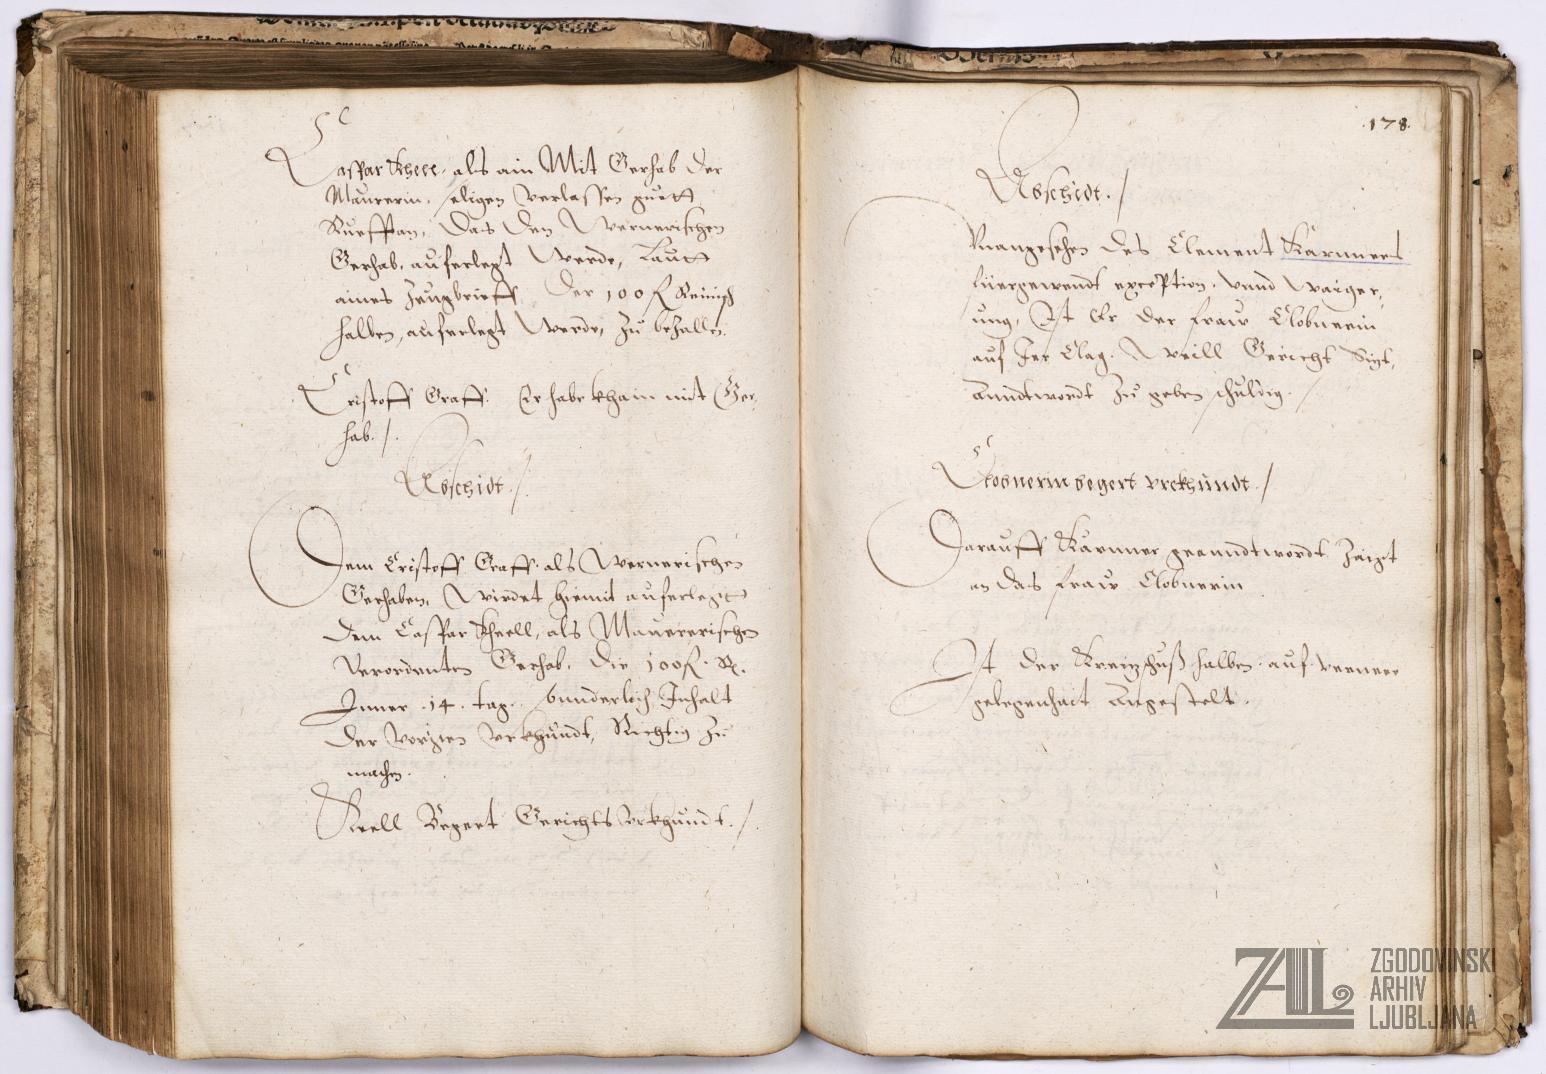 Caspar Khrell, als ain Mit Gerhab der
Maurerin, seligen verlassen guett
Ruefft an, Das den Wernerischen
Gerhab, auferlegt werde, Lautt
aines Zeugbrieff, Der 100 fl Reinisch
halben, auferlegt werde, zu bezallen.
Cristoff Graff. Er habe khain mit Ger-
hab. /.
Abschidt. /.
Dem Cristoff Graff als Wernerischen
Gerhaben, wirdet hiemit auferlegt
dem Caspar Khrell, als Maurerischen
verordenten Gerhab, die 100 fl. R.
Inner .14. tag. Inhalt
der vorigen Urkhundt, Richtig zu
machen.
Krell Begert Gerichts Urkhundt. /
.178.
Abschidt. /
Unangesehen des Clement Karnners
fürgewendt exception, unnd waiger-
ung, Ist Er der fraw Clobnerin
auf Jer Clag. Weill Gericht Sizt,
Anndtwordt zu geben schuldig. /
Clobnerin begert urkhundt. /
Darauff Karnner geanndtwordt Zaigt
an das fraw Clobnerin
Ist der halben auf verrner
gelegenhait Angestelt.
ZAL
ZGODOVINSKI
ARHIV
LJUBLJANA